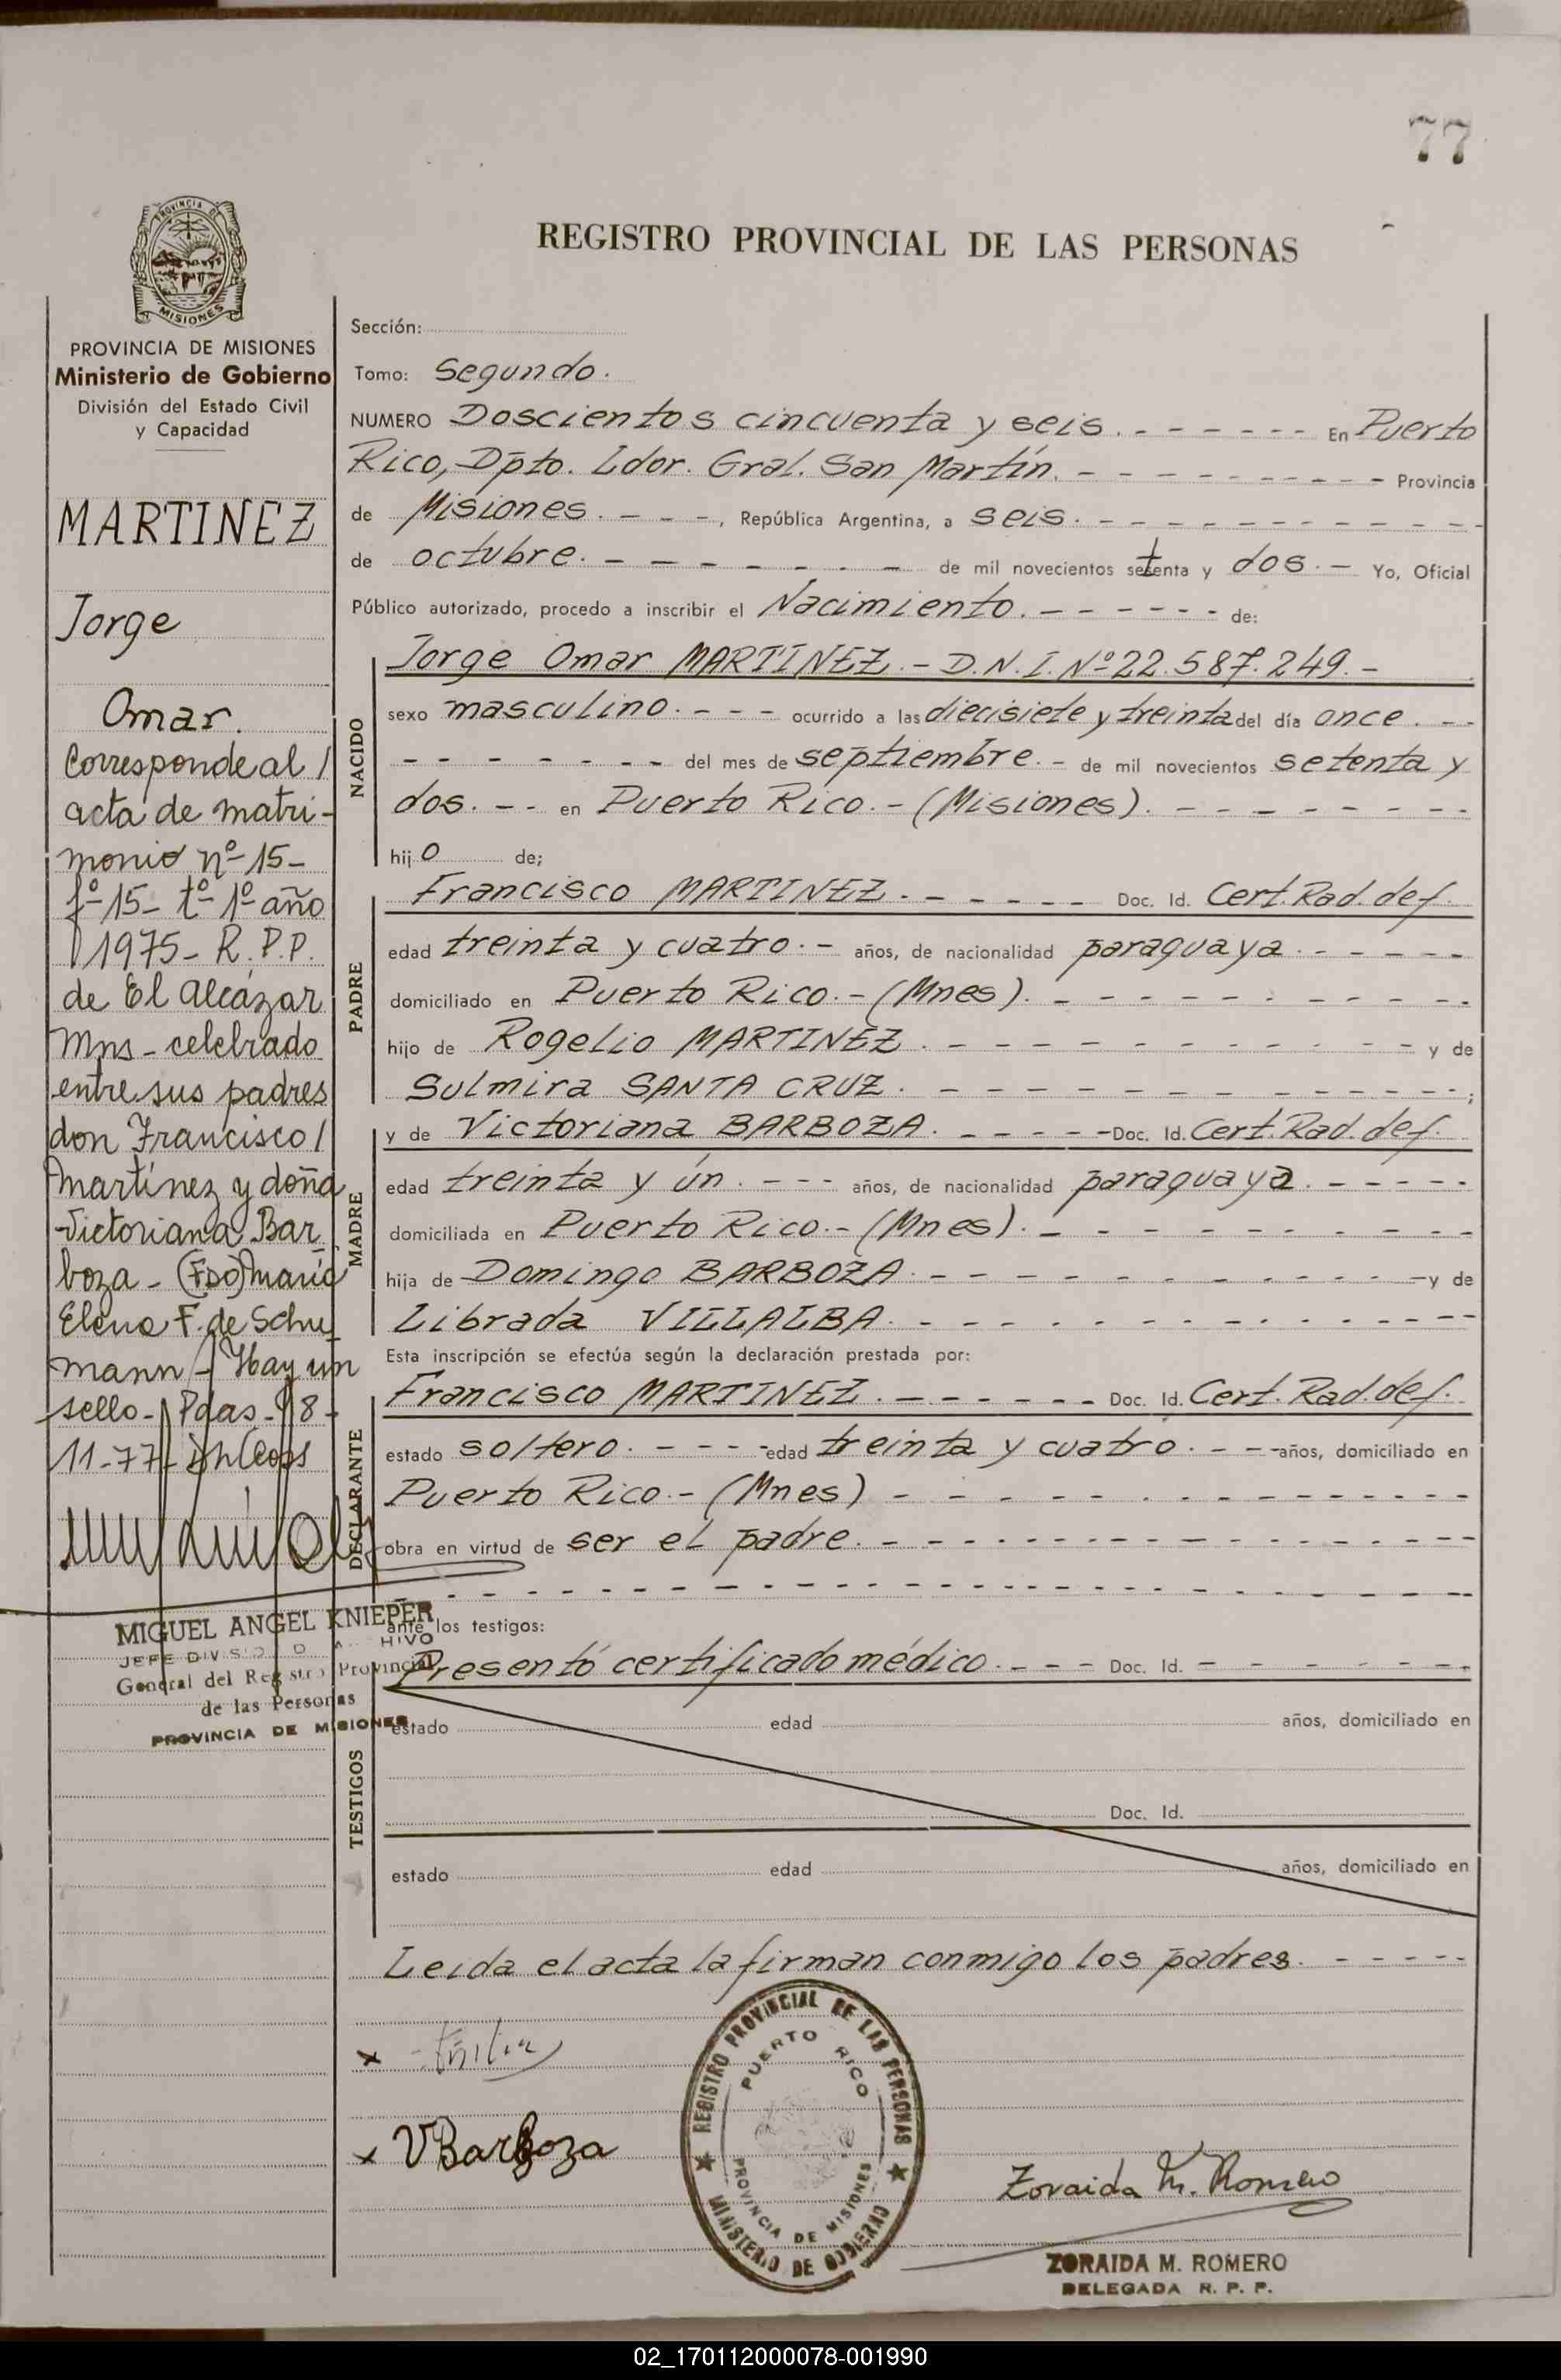 77
PROVINCIA DE
MISIONES
PROVINCIA DE MISIONES
Ministerio de Gobierno
División del Estado Civil
y Capacidad
MARTINEZ
Jorge
Omar.
Corresponde al /
acta de matri-
monio nº 15-
fº 15- tº 1º año
1975- R.P.P.
de El Alcázar
Mns - celebrado
entre sus padres
don Francisco /
Martínez y doña
Victoriana Bar
boza - (FDO) María
Elena F. de Schu
mann - Hay un
sello - Pdas - 18 -
11-77-
MIGUEL ANGEL KNIEPER
JEFE DIVISIO D A HIVO
General del Registro Provincial
de las Personas
PROVINCIA DE MISIONES
REGISTRO PROVINCIAL DE LAS PERSONAS
Sección:
Tomo: Segundo.
NUMERO Doscientos cincuenta y seis. - - - - - - - En Puerto
Rico, Dpto. Ldor. Gral. San Martín. - - - - - - - - - - - Provincia
de Misiones. - - -, República Argentina, a seis. - - - - - - - - - - -
de octubre. - - - - - - - - de mil novecientos setenta y dos. - Yo, Oficial
Público autorizado, procedo a inscribir el Nacimiento. - - - - - - de:
NACIDO
Jorge Omar MARTINEZ. - D.N.I. Nº 22.587.249. -
sexo masculino. - - - ocurrido a las diecisiete y treinta del día once. - -
- - - - - - - - del mes de septiembre. - de mil novecientos setenta y
dos. - - en Puerto Rico. - (Misiones). - - - - - - - -
hijo de;
PADRE
Francisco MARTINEZ. - - - - - Doc. Id. Cert. Rad. def.
edad treinta y cuatro. - años, de nacionalidad paraguaya. - - - - -
domiciliado en Puerto Rico. - (Mnes). - - - - - - - - - -
hijo de Rogelio MARTINEZ. - - - - - - - - - - - y de
Sulmira SANTA CRUZ. - - - - - - - - - - - - - ;
MADRE
y de Victoriana BARBOZA. - - - - - Doc. Id. Cert. Rad. def.
edad treinta y ún. - - - años, de nacionalidad paraguaya. - - - - -
domiciliada en Puerto Rico. - (Mnes). - - - - - - - - - -
hija de Domingo BARBOZA. - - - - - - - - - - - y de
Librada VILLALBA. - - - - - - - - - - - - - -
Esta inscripción se efectúa según la declaración prestada por:
DECLARANTE
Francisco MARTINEZ. - - - - - - Doc. Id. Cert. Rad. def.
estado soltero. - - - - edad treinta y cuatro. - - - años, domiciliado en
Puerto Rico. - (Mnes) - - - - - - - - - - - - - -
obra en virtud de ser el padre. - - - - - - - - - - - - - -
- - - - - - - - - - - - - - - - - - - - - - - -
ante los testigos:
TESTIGOS
Presentó certificado médico. - - - Doc. Id. - - - - - - -
estado edad años, domiciliado en
Doc. Id.
estado edad años, domiciliado en
Leida el acta la firman conmigo los padres. - - - - -
x
x VBarboza
REGISTRO PROVINCIAL DE LAS PERSONAS
PUERTO RICO
PROVINCIA DE MISIONES
MINISTERIO DE GOBIERNO
Zoraida M. Romero
ZORAIDA M. ROMERO
DELEGADA R. P. P.
02_170112000078-001990